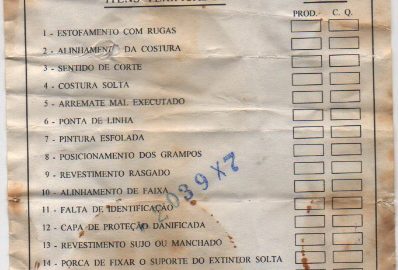 PROD.- C. Q.
1 - ESTOFAMENTO COM RUGAS
2 - ALINHAMENTO DA COSTURA
3 - SENTIDO DE CORTE
4 - COSTURA SOLTA
5 - ARREMATE MAL EXECUTADO
6 - PONTA DE LINHA
7 - PINTURA ESFOLADA
8 - POSICIONAMENTO DOS GRAMPOS
9 - REVESTIMENTO RASGADO
10 - ALINHAMENTO DE FAIXA
11 - FALTA DE IDENTIFICAÇÃO
12 - CAPA DE PROTEÇÃO DANIFICADA
13 - REVESTIMENTO SUJO OU MANCHADO
14 - PORCA DE FIXAR O SUPORTE DO EXTINTOR SOLTA